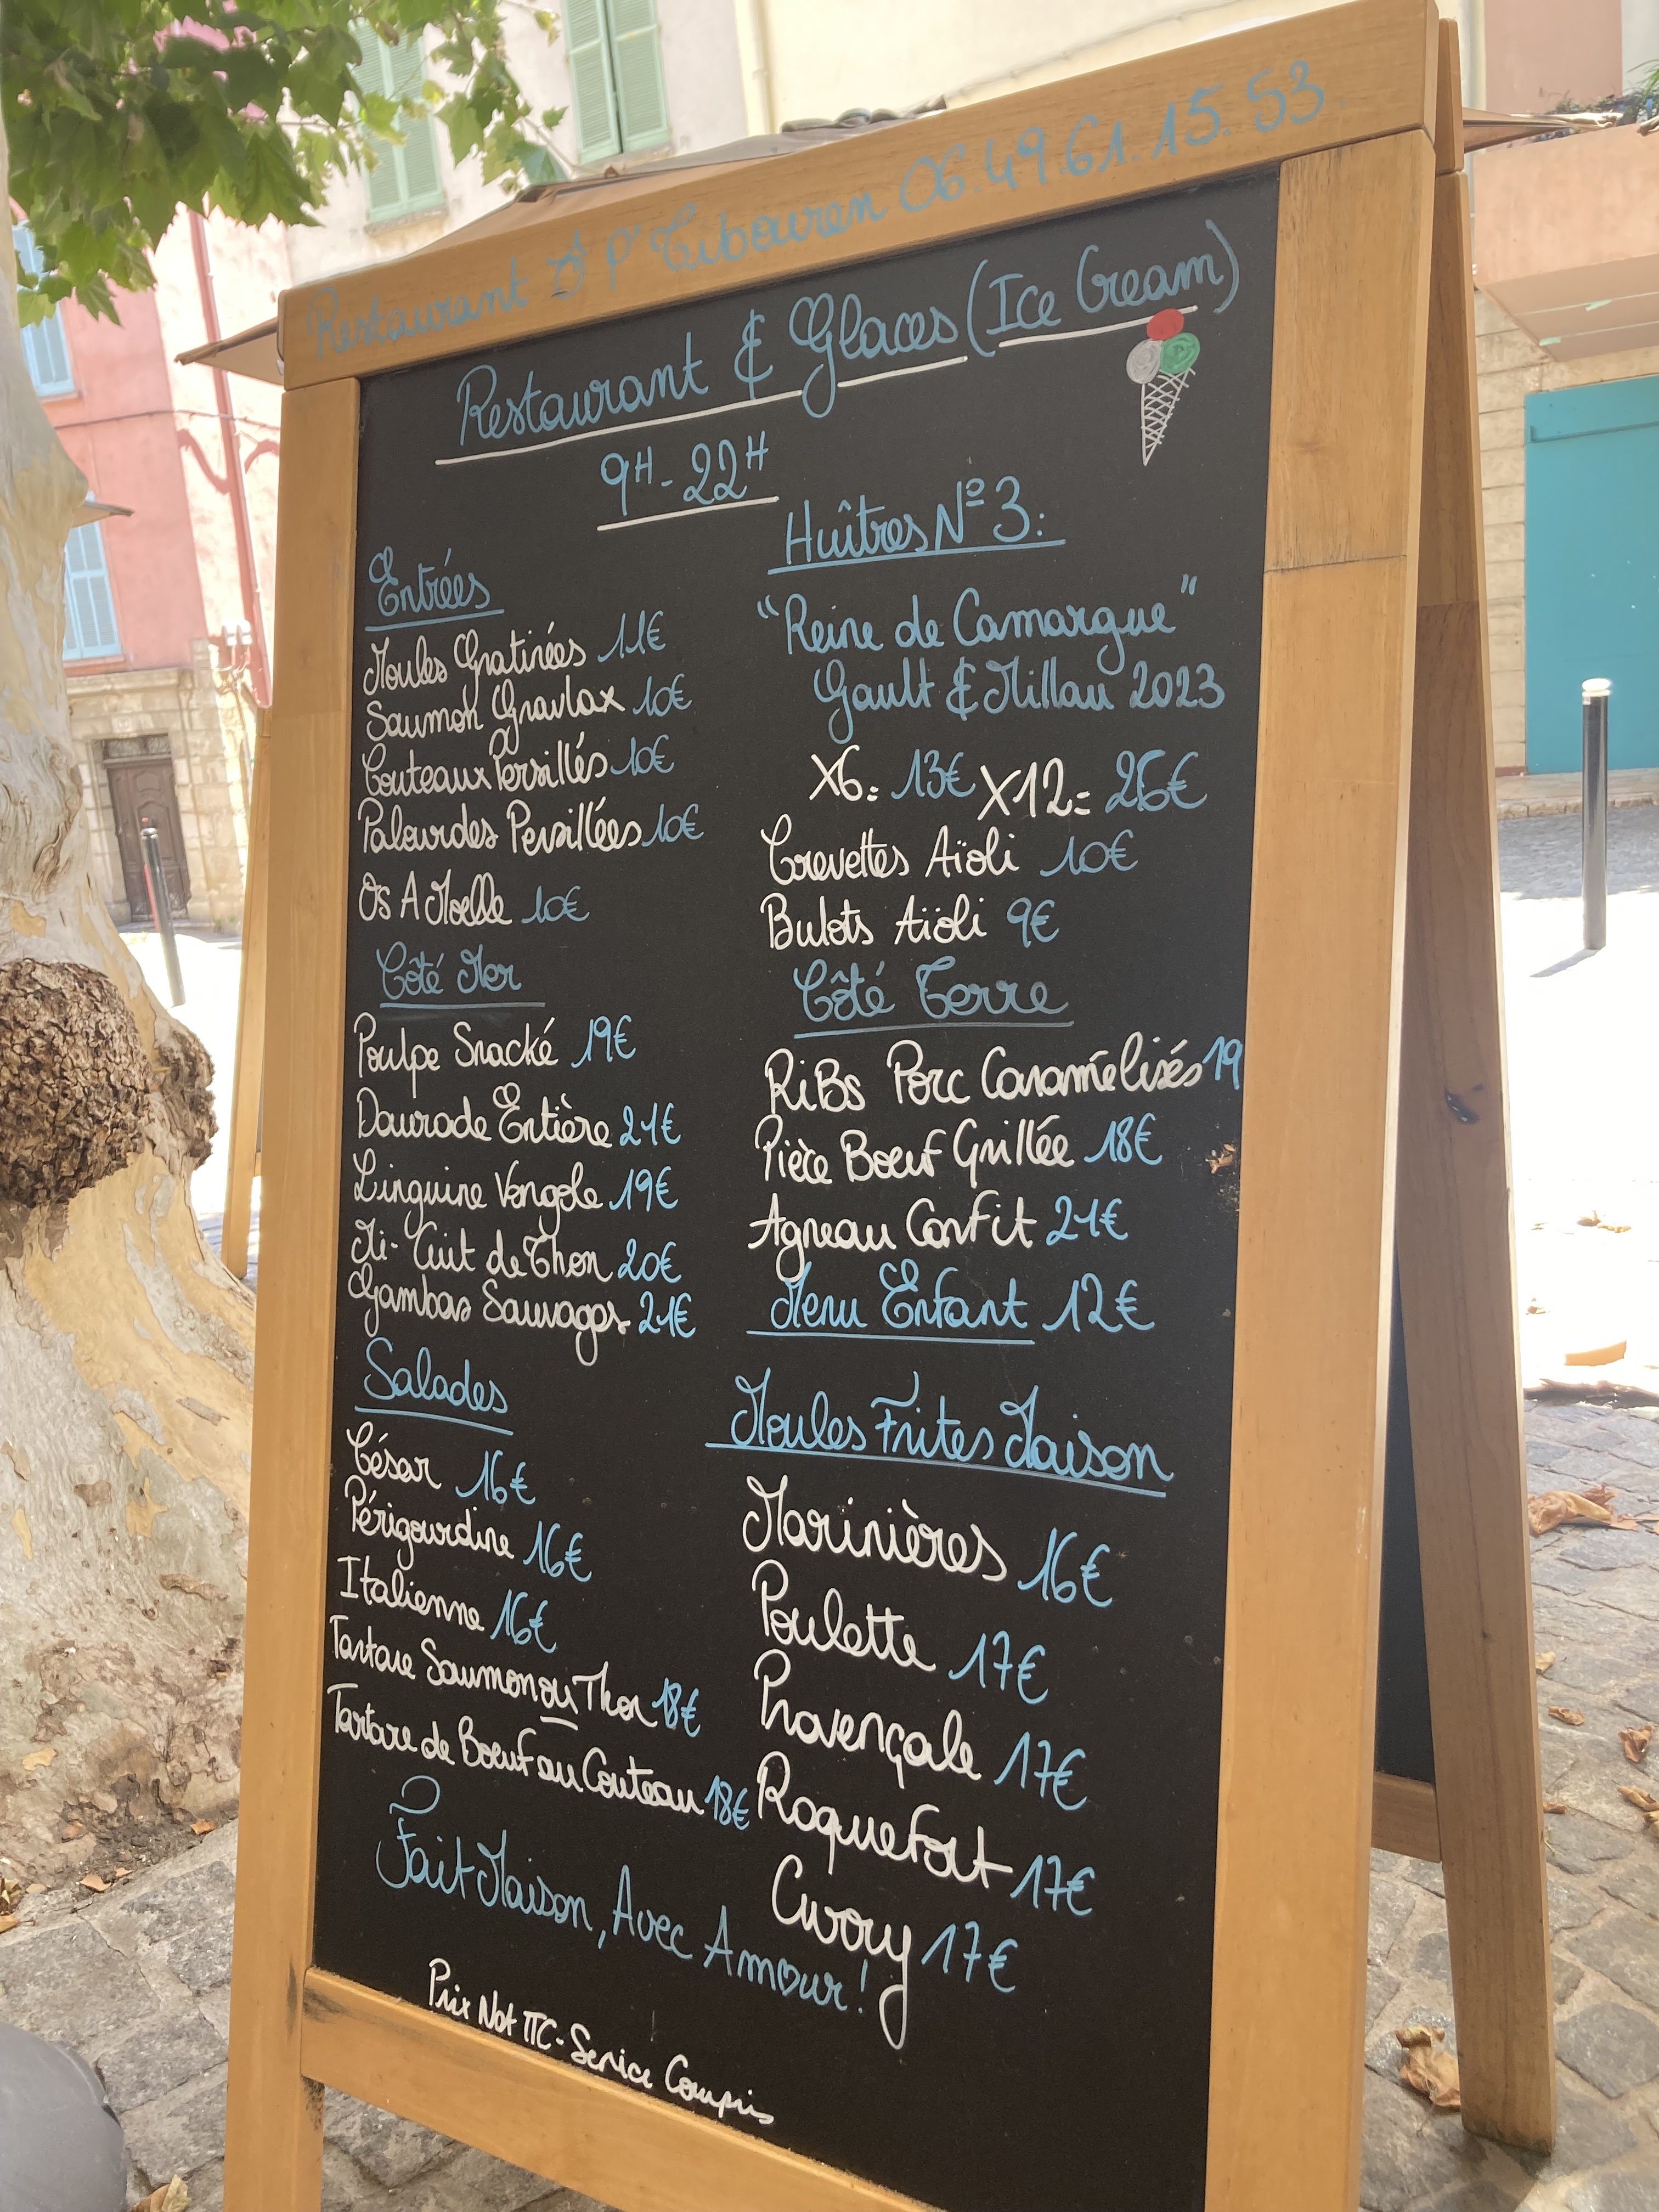 Restaurant Ô P'Tibouren 06.49.61.15.53
Restaurant & Glaces (Ice Cream)
9H - 22H
Entrées
Moules Gratinées 11€
Saumon Gravlax 10€
Couteaux Persillés 10€
Palourdes Persillées 10€
Os A Moelle 10€
Côté Mer
Poulpe Snacké 19€
Daurade Entière 21€
Linguine Vongole 19€
Mi-Cuit de Thon 20€
Gambas Sauvages 21€
Salades
César 16€
Périgourdine 16€
Italienne 16€
Tartare Saumon ou Thon 18€
Tartare de Boeuf au Couteau 18€
Fait Maison, Avec Amour!
Prix Net TTC - Service Compris
Huîtres Nº3:
"Reine de Camargue"
Gault & Millau 2023
X6= 13€ X12= 26€
Crevettes Aïoli 10€
Bulots Aïoli 9€
Côté Terre
Ribs Porc Caramélisés 19
Pièce Boeuf Grillée 18€
Agneau Confit 21€
Menu Enfant 12€
Moules Frites Maison
Marinières 16€
Poulette 17€
Provençale 17€
Roquefort 17€
Curry 17€